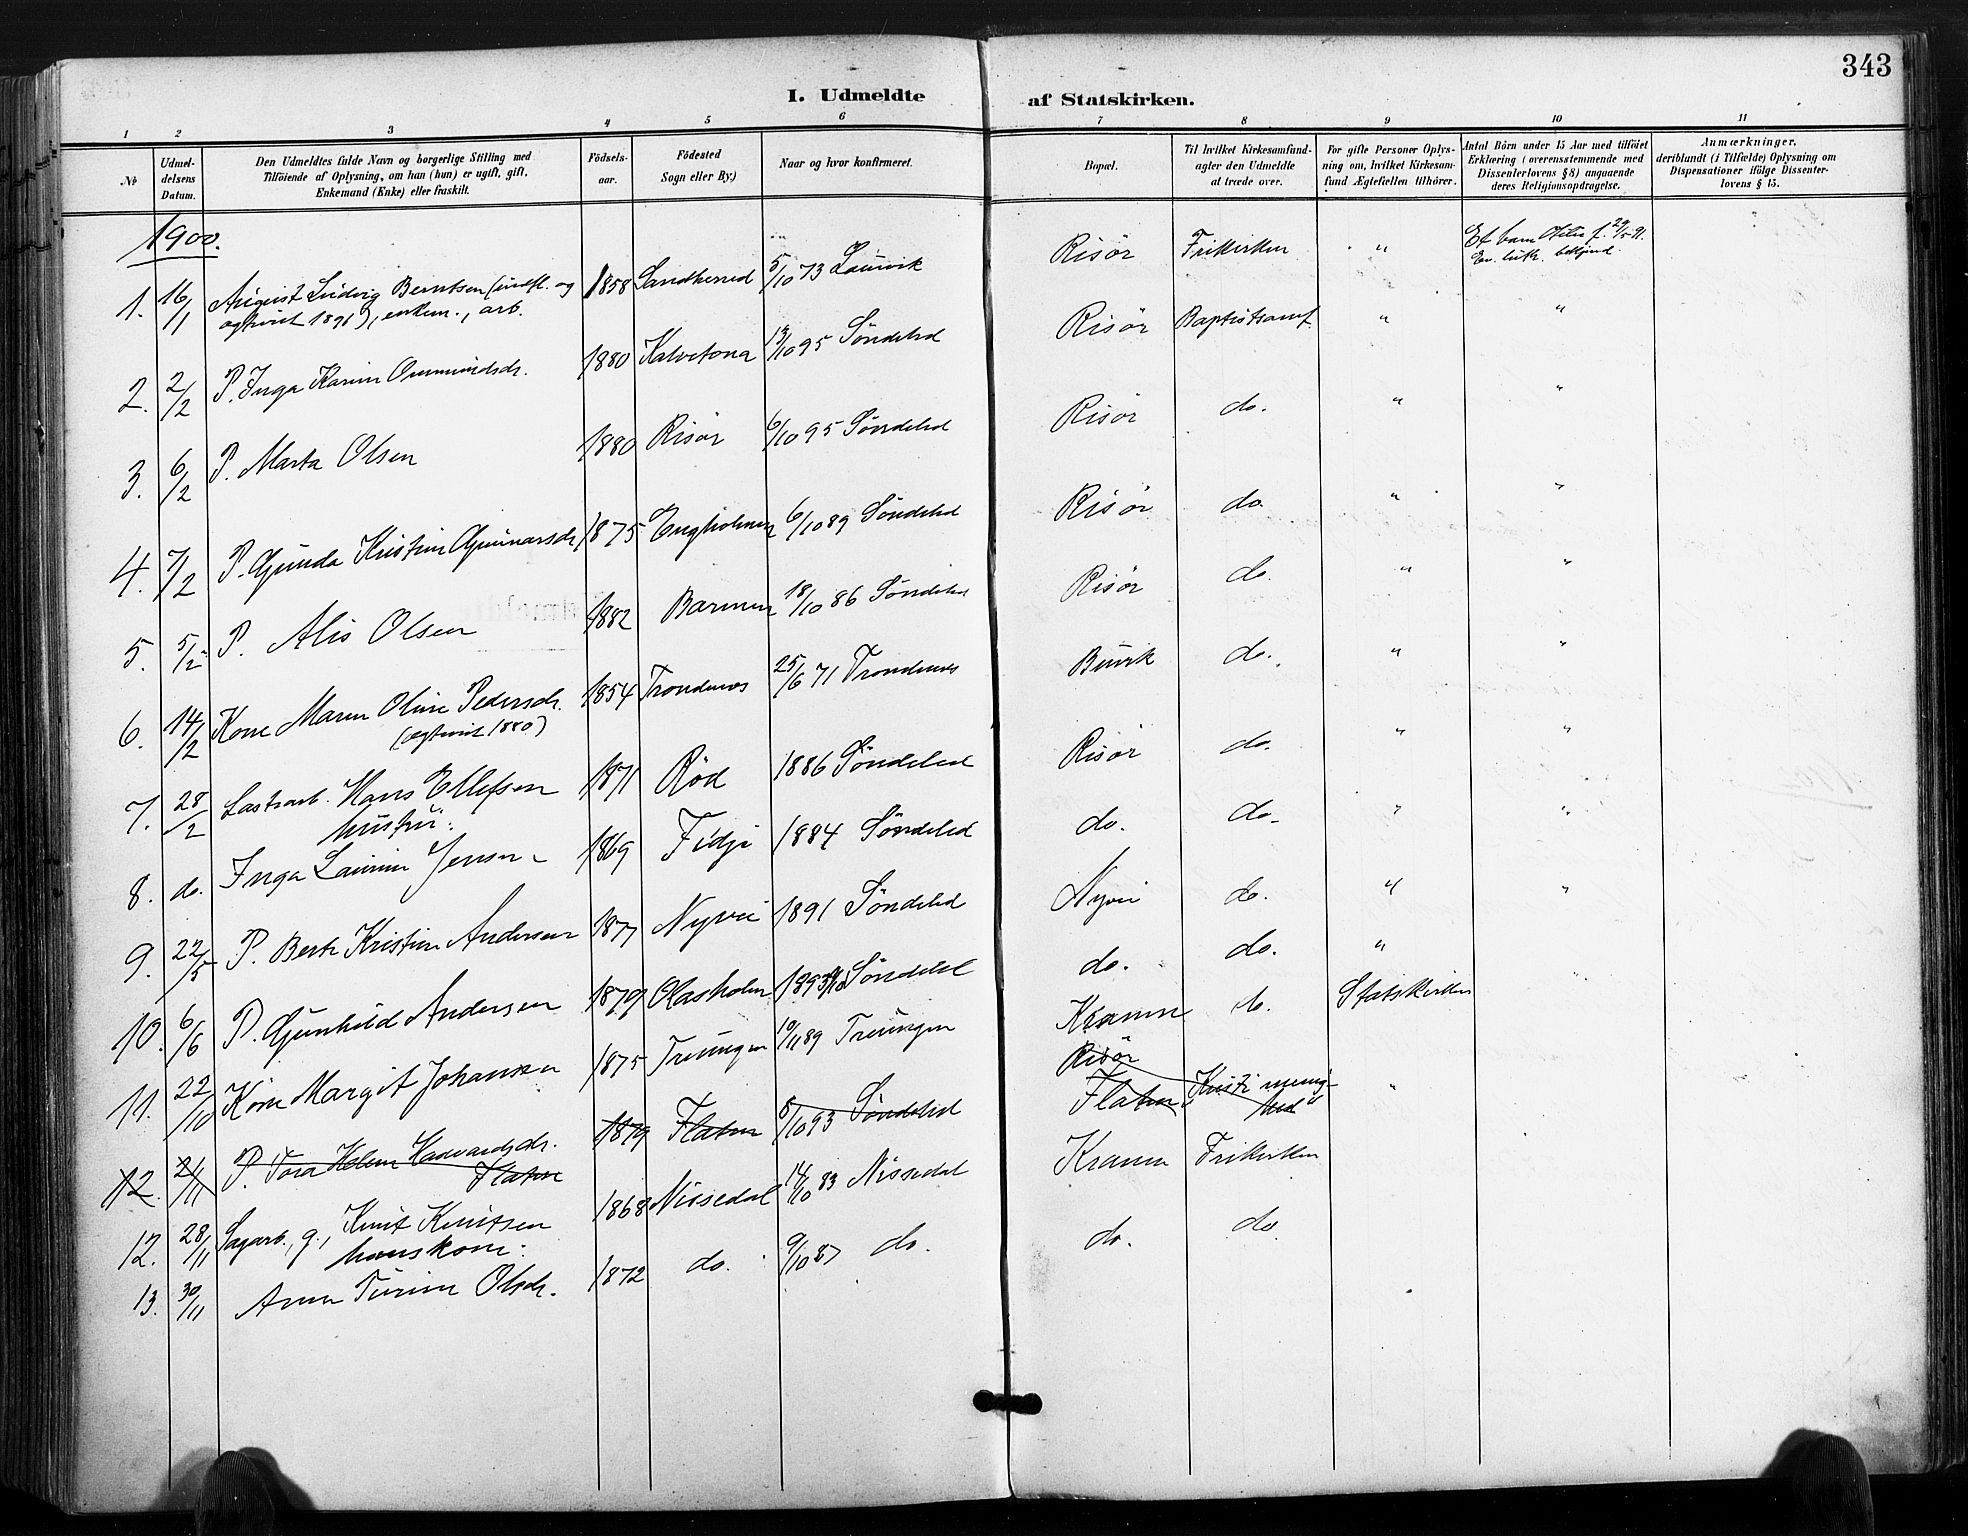 343
I. Udmeldte af Statskirken.
1 2 3 4 5 6 7 8 9 10 11
№ | Udmeldelsens Datum. | Den Udmeldtes fulde Navn og borgerlige Stilling med Tilföiende af Oplysning, om han (hun) er ugift, gift, Enkemand (Enke) eller fraskilt. | Födselsaar. | Födested Sogn eller By.) | Naar og hvor konfirmeret. | Bopæl. | Til hvilket Kirkesamfund agter den Udmeldte at træde over. | For gifte Personer Oplysning om, hvilket Kirkesamfund Ægtefællen tilhörer. | Antal Börn under 15 Aar med tilföiet Erklæring (overensstemmende med Dissenterlovens § 8) angaaende deres Religionsopdragelse. | Anmærkninger, deriblandt (i Tilfælde) Oplysning om Dispensationer ifölge Dissenterlovens § 15.
1900.
1. 16/11 August Ludvig Berntsen (indfl. og 1858 Sandherred 5/10 73 Laurvik Risör Frikirken " Et barn f. 29/5 91.
1891), enkem., arb. Ev. luth.
2. 2/2 P. Inga Karine Ommundsdr. 1880 13/10 95 Söndeled Risör Baptistsamf. " "
3. 6/2 P. Marta Olsen 1880 Risör 6/10 95 Söndeled Risör do. " "
4. 7/2 P. Gunda Kristine Gunnarsdr. 1875 6/10 89 Söndeled Risör do " "
5. 5/2 P. Alis Olsen 1882 Barmen 18/10 86 Söndeled Risör do. " "
6. 14/2 Kone Maren Oline Pedersdr. 1854 Trondenes 25/6 71 Trondenes Buvik do. " "
(agtviet 1880)
7. 28/2 Lastearb. Hans Ellefsen 1871 Röd 1886 Söndeled Risör do. " "
hustru:
8. do. Inga Jensen 1869 Fidje 1884 Söndeled do. do. " "
9. 22/5 P. Berte Kristine Andersen 1877 Nyvei 1891 Söndeled Nyvei do. " "
10. 6/6 P. Gunhild Andersen 1879 Olasholm 1893 Söndeled do. do. "
11. 22/10 Kone Margit Johansen 1875 Treungen 10/11 89 Treungen Kranen do. Statskirken
Risör
12. 21/11 P. Tora Helene Hadvardsdr. 1879 Flaten 8/10 93 Söndeled Flaten "Kristi menig- "
Flaten hed"
12. 28/11 Sagarb., g., Knut Knutsen 1868 Nissedal 14/10 83 Nissedal Kranen Frikirken
hans kone:
13. 30/11 Anne Turine Olsdr. 1872 do. 9/10 87 do. do. do